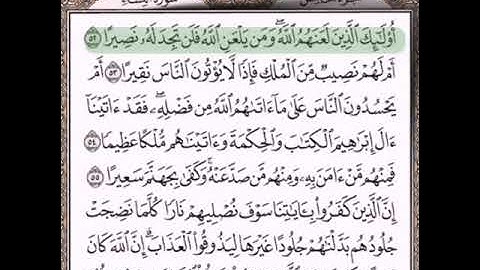 أُوْلَٰٓئِكَ ٱلَّذِينَ لَعَنَهُمُ ٱللَّهُۖ وَمَن يَلْعَنِ ٱللَّهُ فَلَن تَجِدَ لَهُۥ نَصِيرًا ٥٢
أَمْ لَهُمْ نَصِيبٌ مِّنَ ٱلْمُلْكِ فَإِذًا لَّا يُؤْتُونَ ٱلنَّاسَ نَقِيرًا ٥٣ أَمْ
يَحْسُدُونَ ٱلنَّاسَ عَلَىٰ مَآ ءَاتَىٰهُمُ ٱللَّهُ مِن فَضْلِهِۦۖ فَقَدْ ءَاتَيْنَآ
ءَالَ إِبْرَٰهِيمَ ٱلْكِتَٰبَ وَٱلْحِكْمَةَ وَءَاتَيْنَٰهُم مُّلْكًا عَظِيمًا ٥٤
فَمِنْهُم مَّنْ ءَامَنَ بِهِۦ وَمِنْهُم مَّن صَدَّ عَنْهُۚ وَكَفَىٰ بِجَهَنَّمَ سَعِيرًا ٥٥
إِنَّ ٱلَّذِينَ كَفَرُوا۟ بِـَٔايَٰتِنَا سَوْفَ نُصْلِيهِمْ نَارًا كُلَّمَا نَضِجَتْ
جُلُودُهُم بَدَّلْنَٰهُمْ جُلُودًا غَيْرَهَا لِيَذُوقُوا۟ ٱلْعَذَابَۗ إِنَّ ٱللَّهَ كَانَ